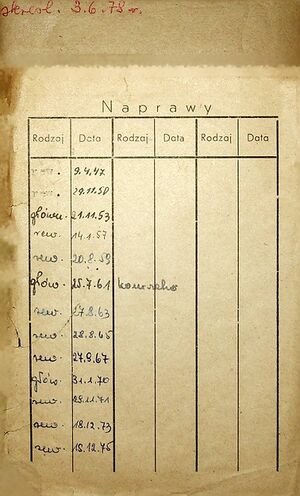 skreśl. 3.6.78 r.
Naprawy
Rodzaj Data Rodzaj Data Rodzaj Data
rew. 9.4.47
rew. 29.11.50
główn. 21.11.53
rew. 14.1.57
rew. 20.8.59
głów. 25.7.61
rew. 27.8.63
rew. 28.8.65
rew. 27.9.67
głów. 31.1.70
rew. 29.11.71
rew. 18.12.73
rew. 18.12.75